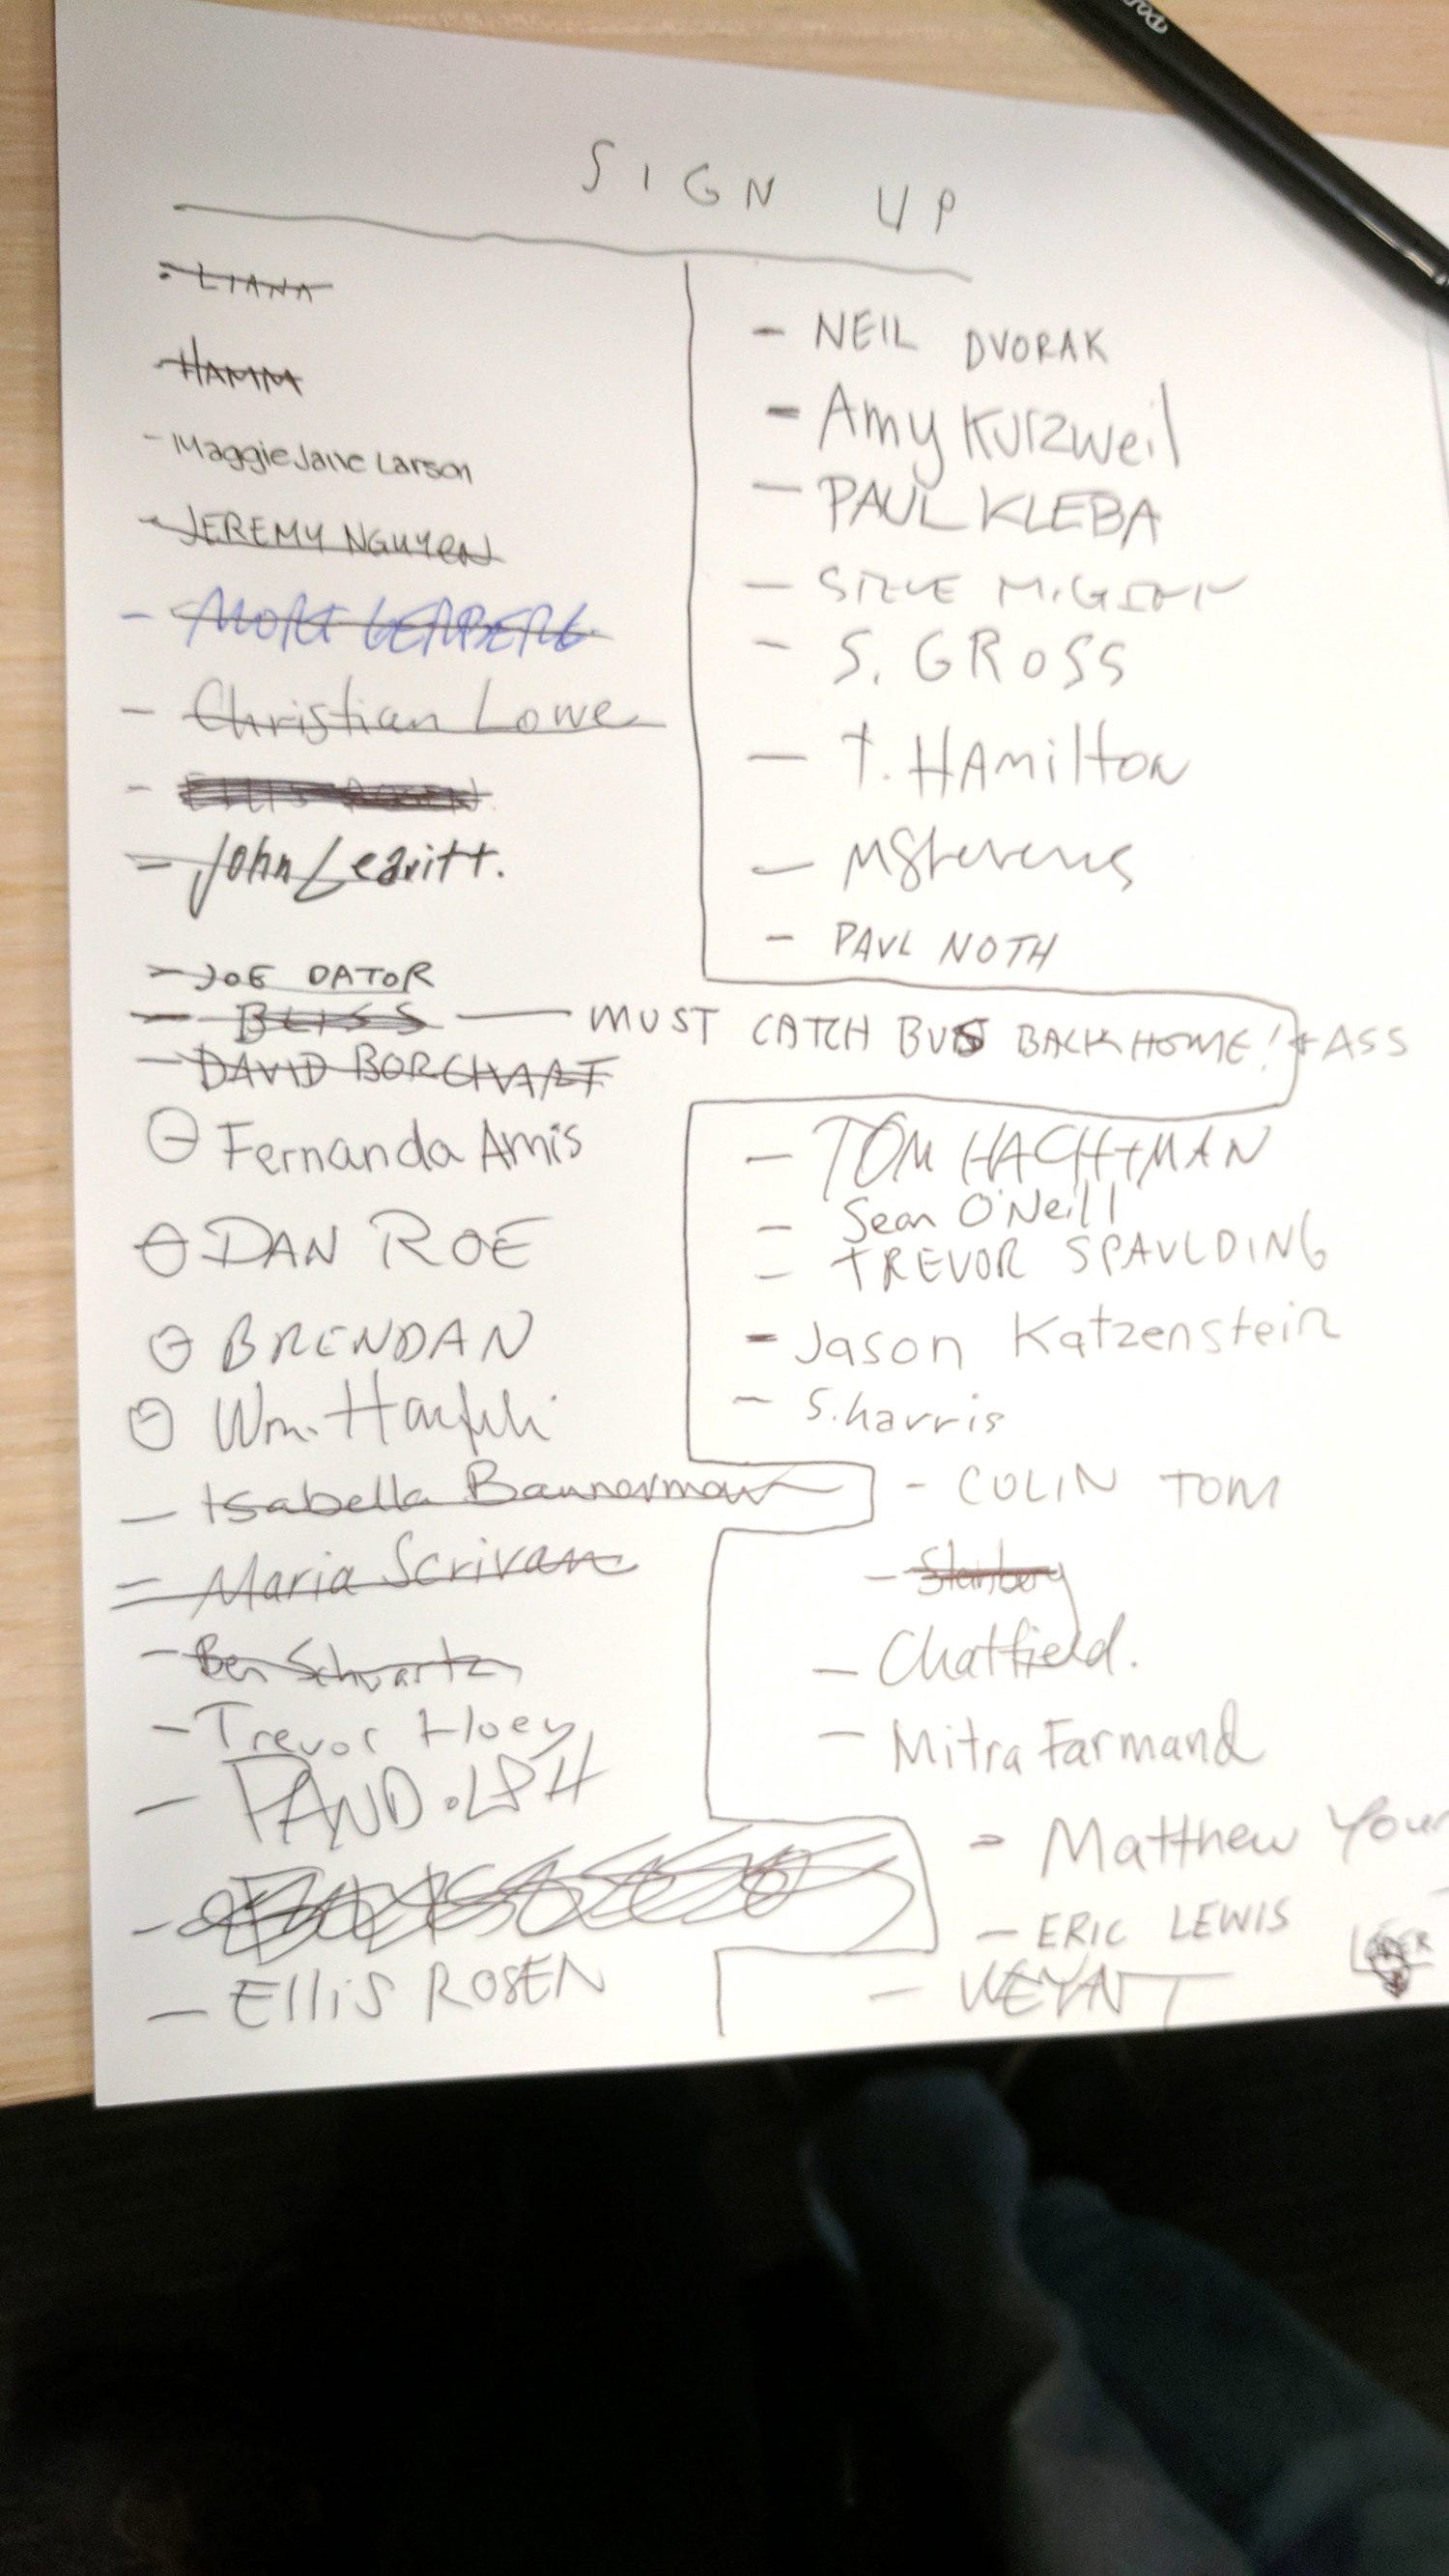 SIGN UP
- LIANA
- HAMM
- Maggie Jane Larson
- JEREMY NGUYEN
- MORT GERBERG
- Christian Lowe
- ELLIS ROSEN
- John Leavitt.
- JOE DATOR
- BLISS — MUST CATCH BUS BACK HOME! + ASS
- DAVID BORCHART
- Fernanda Amis
- DAN ROE
- BRENDAN
- Wm.
- Isabella Bannerman
- Maria Scrivan
- Ben Schwartz
- Trevor Hoey
-
- ELLIS ROSEN
- NEIL DVORAK
- Amy Kurzweil
- PAUL KLEBA
- S. GROSS
- T. HAMILTON
- MStevens
- PAUL NOTH
- TOM HACHTMAN
- Sean O'Neill
- TREVOR SPAULDING
- Jason Katzenstein
- S. harris
- COLIN TOM
- Chatfield.
- Mitra Farmand
- Matthew
- ERIC LEWIS
- WEYANT